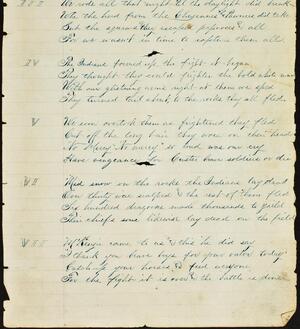 III We rode all that night till the daylight did break
the herd from the Cheyenne did take
But the squaws they escaped papooses & all
For we wasn't in time to capture them all
IV The Indians formed up the fight it began
They thought they could frighten the bold white man
With our glistening arms right at them we sped
They turned out about to the rocks they all fled.
V We soon overtook them as frightened they fled
Cut off the long hair they wore on their heads
No Mercy No mercy is loud was our cry
Have vengeance for Custer brave soldiers or die
VI Mid snow on the rocks the Indians lay dead
One thirty was scalped & the rest of them fled
Six hundred dragoons made thousands to yield
Their chiefs some likewise lay dead on the field
VII McKenzie came to us & this he did say
I thank you brave boys for your valor today
Catch up your horses & feed everyone
For the fight it is over & the battle is done